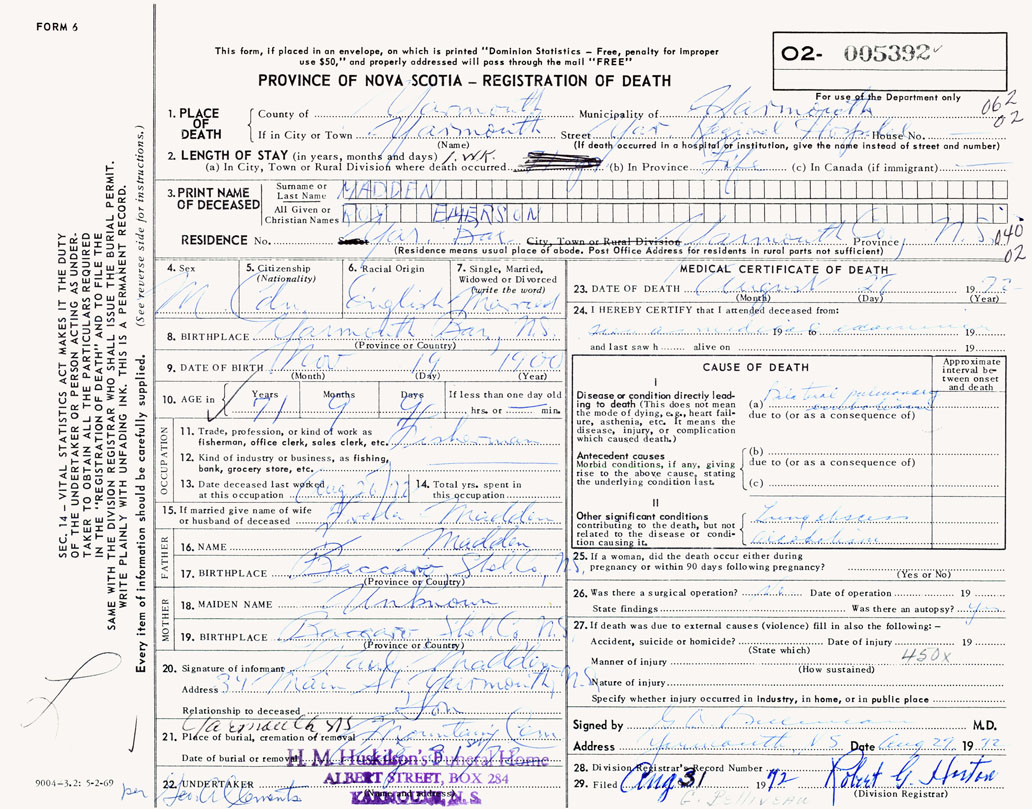 FORM 6
This form, if placed in an envelope, on which is printed "Dominion Statistics – Free, penalty for improper
use $50," and properly addressed will pass through the mail "FREE"
PROVINCE OF NOVA SCOTIA – REGISTRATION OF DEATH
O2- 005392
For use of the Department only
062
02
1. PLACE OF DEATH County of Yarmouth Municipality of Yarmouth
If in City or Town Yarmouth Street Yar Regional Hospital House No.
(Name) (If death occurred in a hospital or institution, give the name instead of street and number)
2. LENGTH OF STAY (in years, months and days) 1. WK.
(a) In City, Town or Rural Division where death occurred (b) In Province Life (c) In Canada (if immigrant)
3. PRINT NAME OF DECEASED Surname or Last Name MADDEN
All Given or Christian Names ROY EMERSON
RESIDENCE No. Yar. Bar City, Town or Rural Division Yarmouth Co. Province N.S.
040
02
(Residence means usual place of abode. Post Office Address for residents in rural parts not sufficient)
4. Sex M
5. Citizenship (Nationality) Cdn.
6. Racial Origin English
7. Single, Married, Widowed or Divorced (write the word) Married
8. BIRTHPLACE Yarmouth Bar, N.S.
(Province or Country)
9. DATE OF BIRTH Nov 19 1900
(Month) (Day) (Year)
10. AGE in Years Months Days If less than one day old
71 9 hrs. or min.
OCCUPATION
11. Trade, profession, or kind of work as fisherman, office clerk, sales clerk, etc. Fisherman
12. Kind of industry or business, as fishing, bank, grocery store, etc.
13. Date deceased last worked at this occupation Aug 26/72
14. Total yrs. spent in this occupation
15. If married give name of wife or husband of deceased Madden
FATHER
16. NAME Madden
17. BIRTHPLACE Baccaro Shel. Co, N.S.
(Province or Country)
MOTHER
18. MAIDEN NAME Unknown
19. BIRTHPLACE Baccaro Shel. Co N.S.
(Province or Country)
20. Signature of informant Madden
Address 34 Main St. Yarmouth, N.S.
Relationship to deceased Son
Yarmouth NS
21. Place of burial, cremation or removal Mountain Cem
Date of burial or removal
H. M. Huskilson's Funeral Home
ALBERT STREET, BOX 284
YARMOUTH, N.S.
22. UNDERTAKER
(Name and address)
per Clements
MEDICAL CERTIFICATE OF DEATH
23. DATE OF DEATH August 29 1972
(Month) (Day) (Year)
24. I HEREBY CERTIFY that I attended deceased from:
as a medical examiner 19 to 19
and last saw h alive on 19
CAUSE OF DEATH
Approximate interval between onset and death
I
Disease or condition directly leading to death (This does not mean the mode of dying, e.g., heart failure, asthenia, etc. It means the disease, injury, or complication which caused death.)
(a) Bilateral pulmonary
due to (or as a consequence of)
Antecedent causes
Morbid conditions, if any, giving rise to the above cause, stating the underlying condition last.
(b)
due to (or as a consequence of)
(c)
II
Other significant conditions contributing to the death, but not related to the disease or condition causing it.
Lung abscess
25. If a woman, did the death occur either during pregnancy or within 90 days following pregnancy?
(Yes or No)
26. Was there a surgical operation? No Date of operation 19
State findings Was there an autopsy? Yes
27. If death was due to external causes (violence) fill in also the following:–
Accident, suicide or homicide? Date of injury 19
(State which)
Manner of injury 450X
(How sustained)
Nature of injury
Specify whether injury occurred in industry, in home, or in public place
Signed by M.D.
Address Yarmouth N.S. Date Aug 29. 1972
28. Division Registrar's Record Number
29. Filed Aug 31 1972 Robert G. Horton
(Division Registrar)
G. BELLIVEAU
SEC. 14 – VITAL STATISTICS ACT MAKES IT THE DUTY
OF THE UNDERTAKER OR PERSON ACTING AS UNDER-
TAKER TO OBTAIN ALL THE PARTICULARS REQUIRED
IN THE "REGISTRATION OF DEATH" AND TO FILE THE
SAME WITH THE DIVISION REGISTRAR WHO SHALL ISSUE THE BURIAL PERMIT.
WRITE PLAINLY WITH UNFADING INK. THIS IS A PERMANENT RECORD.
Every item of information should be carefully supplied. (See reverse side for instructions.)
9004–3.2: 5-2-69